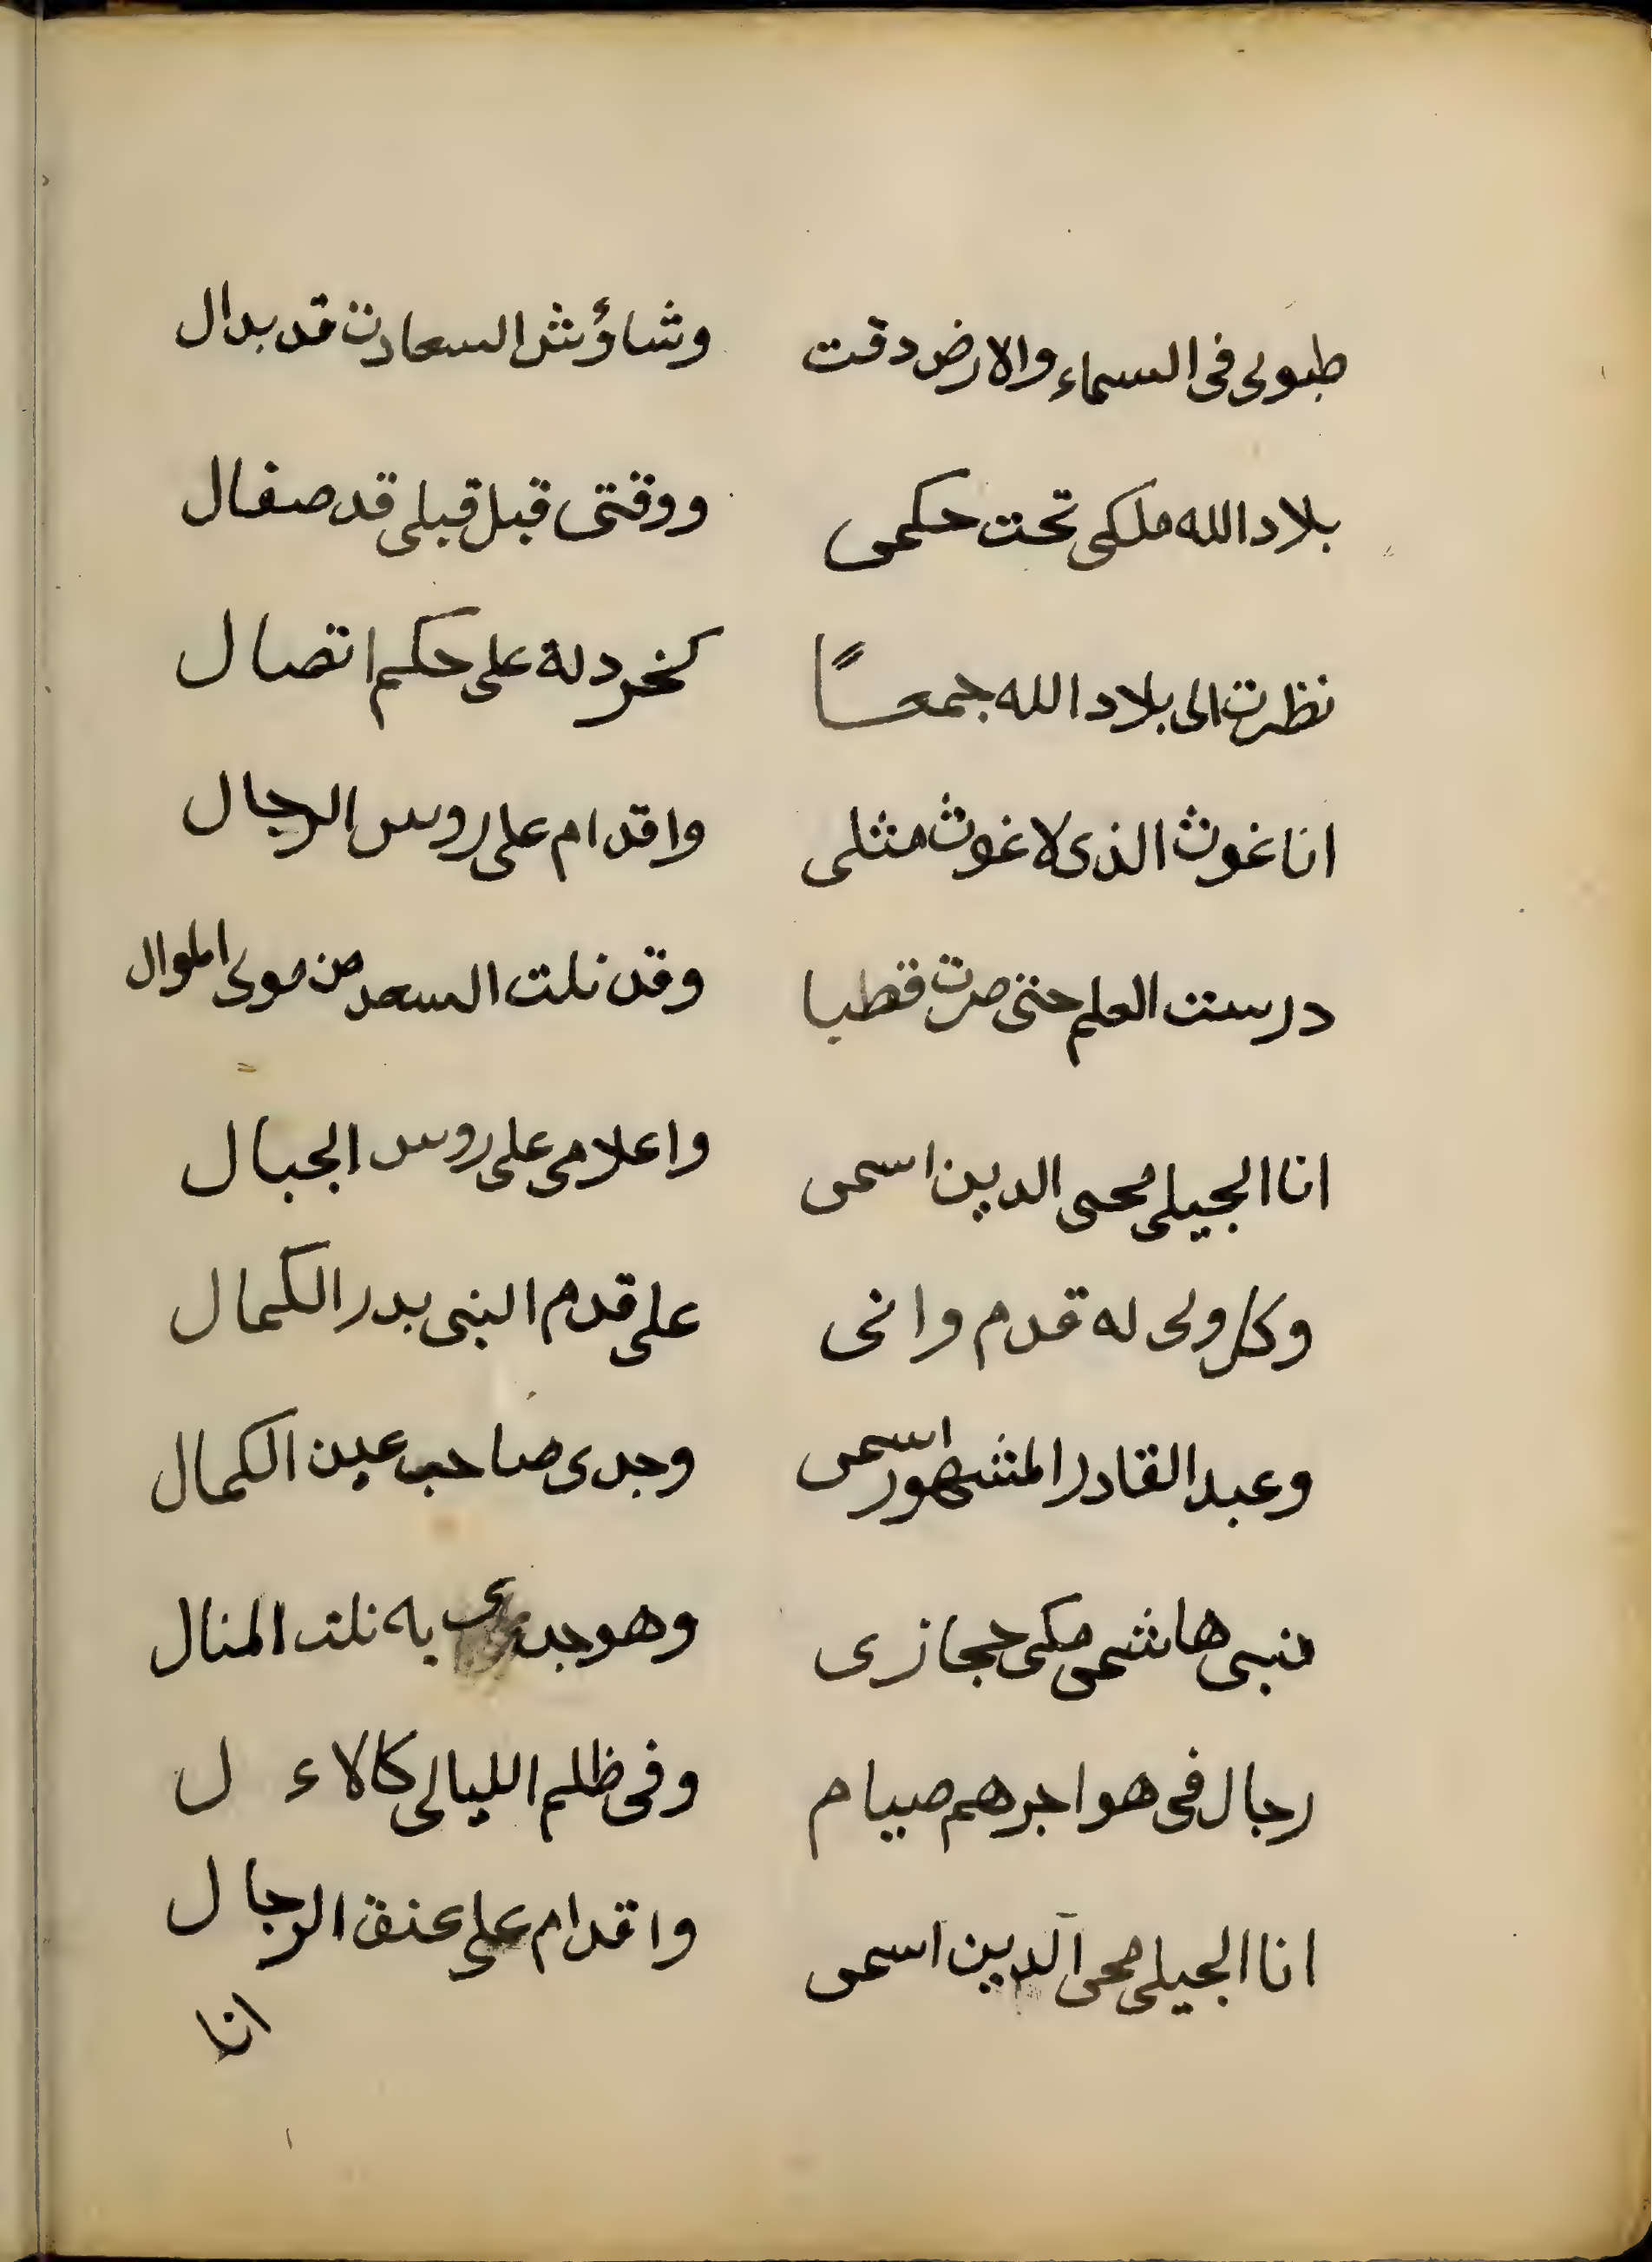 طبولى فى السماء والارض دقت وشاؤش السعادت قد بدال
بلاد الله ملكى تحت حكمى ووقتى قبل قبلى قد صفال
نظرت الى بلاد الله جمعـــاً كخردلة على حكم اتصال
انا غوث الذى لا غوث مثلى واقدام على روس الرجال
درست العلم حتى صرت قطبا وقد نلت السعد من مولى الموال
انا الجيلى محى الدين اسمى واعلامى على روس الجبال
وكل ولى له قدم وانى على قدم النبى بدر الكمال
وعبد القادر المشهور اسمى وجدى صاحب عين الكمال
نبى هاشمى مكى حجازى وهو جدى به نلت المنال
رجال فى هواجرهم صيام وفى ظلم الليالى كالاء ل
انا الجيلى محى الدين اسمى واقدام على عنق الرجال
انا